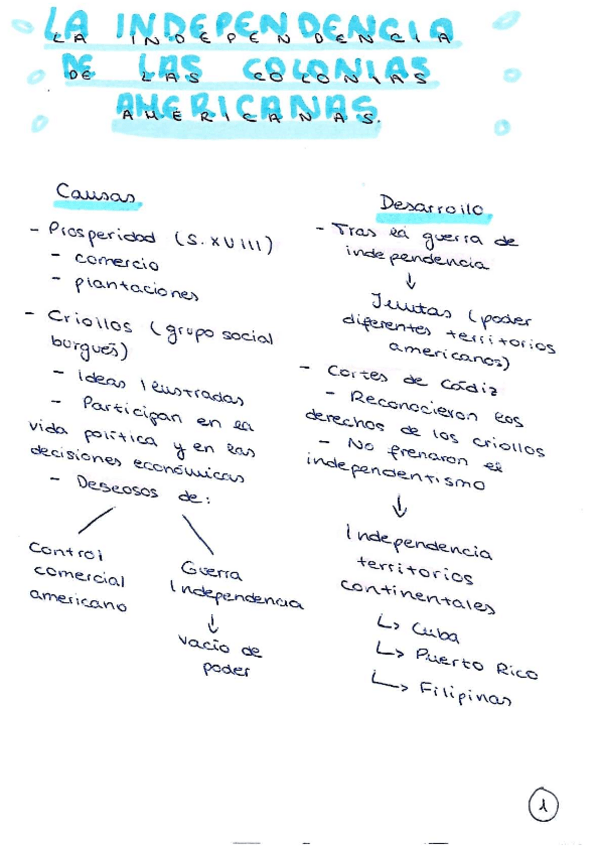 LA INDEPENDENCIA
DE LAS COLONIAS
AMERICANAS.
Causas
- Prosperidad (S. XVIII)
- comercio
- plantaciones
- Criollos (grupo social
burgués)
- Ideas Ilustradas
- Participan en la
vida política y en las
decisiones económicas
- Deseosos de:
Control
comercial
americano
Guerra
Independencia
↓
vacío de
poder
Desarrollo
- Tras la guerra de
independencia
↓
Juntas (poder
diferentes territorios
americanos)
- Cortes de Cádiz
- Reconocieron los
derechos de los criollos
- No frenaron el
independentismo
↓
Independencia
territorios
continentales
↳ Cuba
↳ Puerto Rico
↳ Filipinas
1